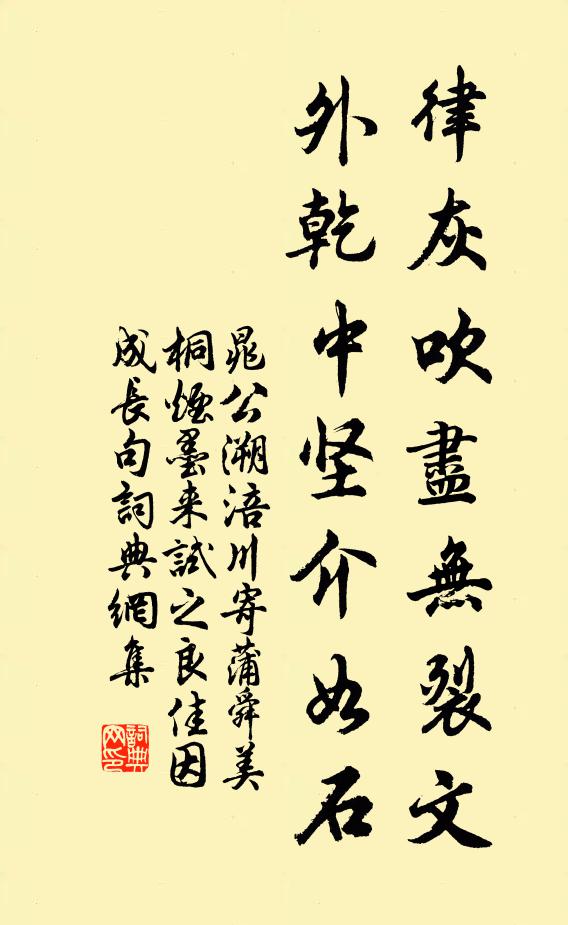 律灰吹盡無裂文
外乾中坚介如石
晁公溯涪川寄蒲舜美
桐煙墨来試之良佳因
成長句詞典網集
詞典网印